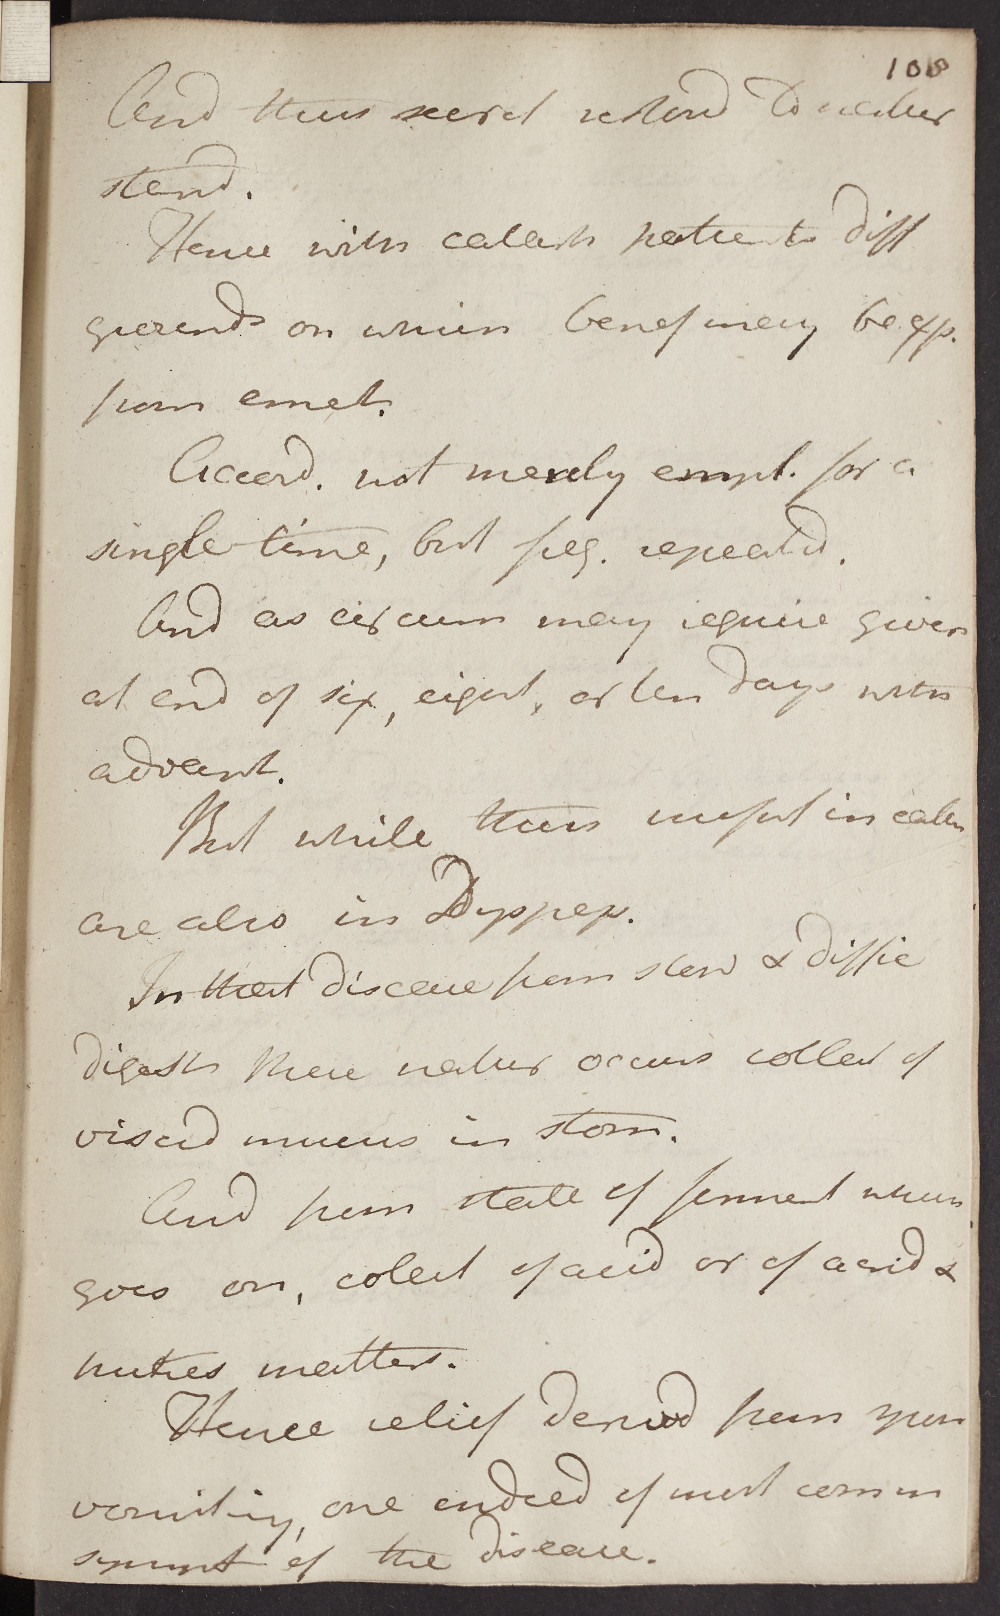 108
And thus secret restord to natur
stand.
Hence with catarh patients diff
grounds on which benef may be exp.
from emet.
Accord. not merely empl. for a
single time, but freq. repeatd.
And as circum may require given
at end of six, eight, or ten days with
advant.
But while thus useful in catar
are also in Dyspeps.
In that disease from slow & diffic
digestn there natur occurs collect of
viscid mucus in stom.
And from state of ferment which
goes on, colect of acid or of acrid &
putres matters.
Hence relief derived from spon
vomiting, one indeed of most comm
sympt of the disease.